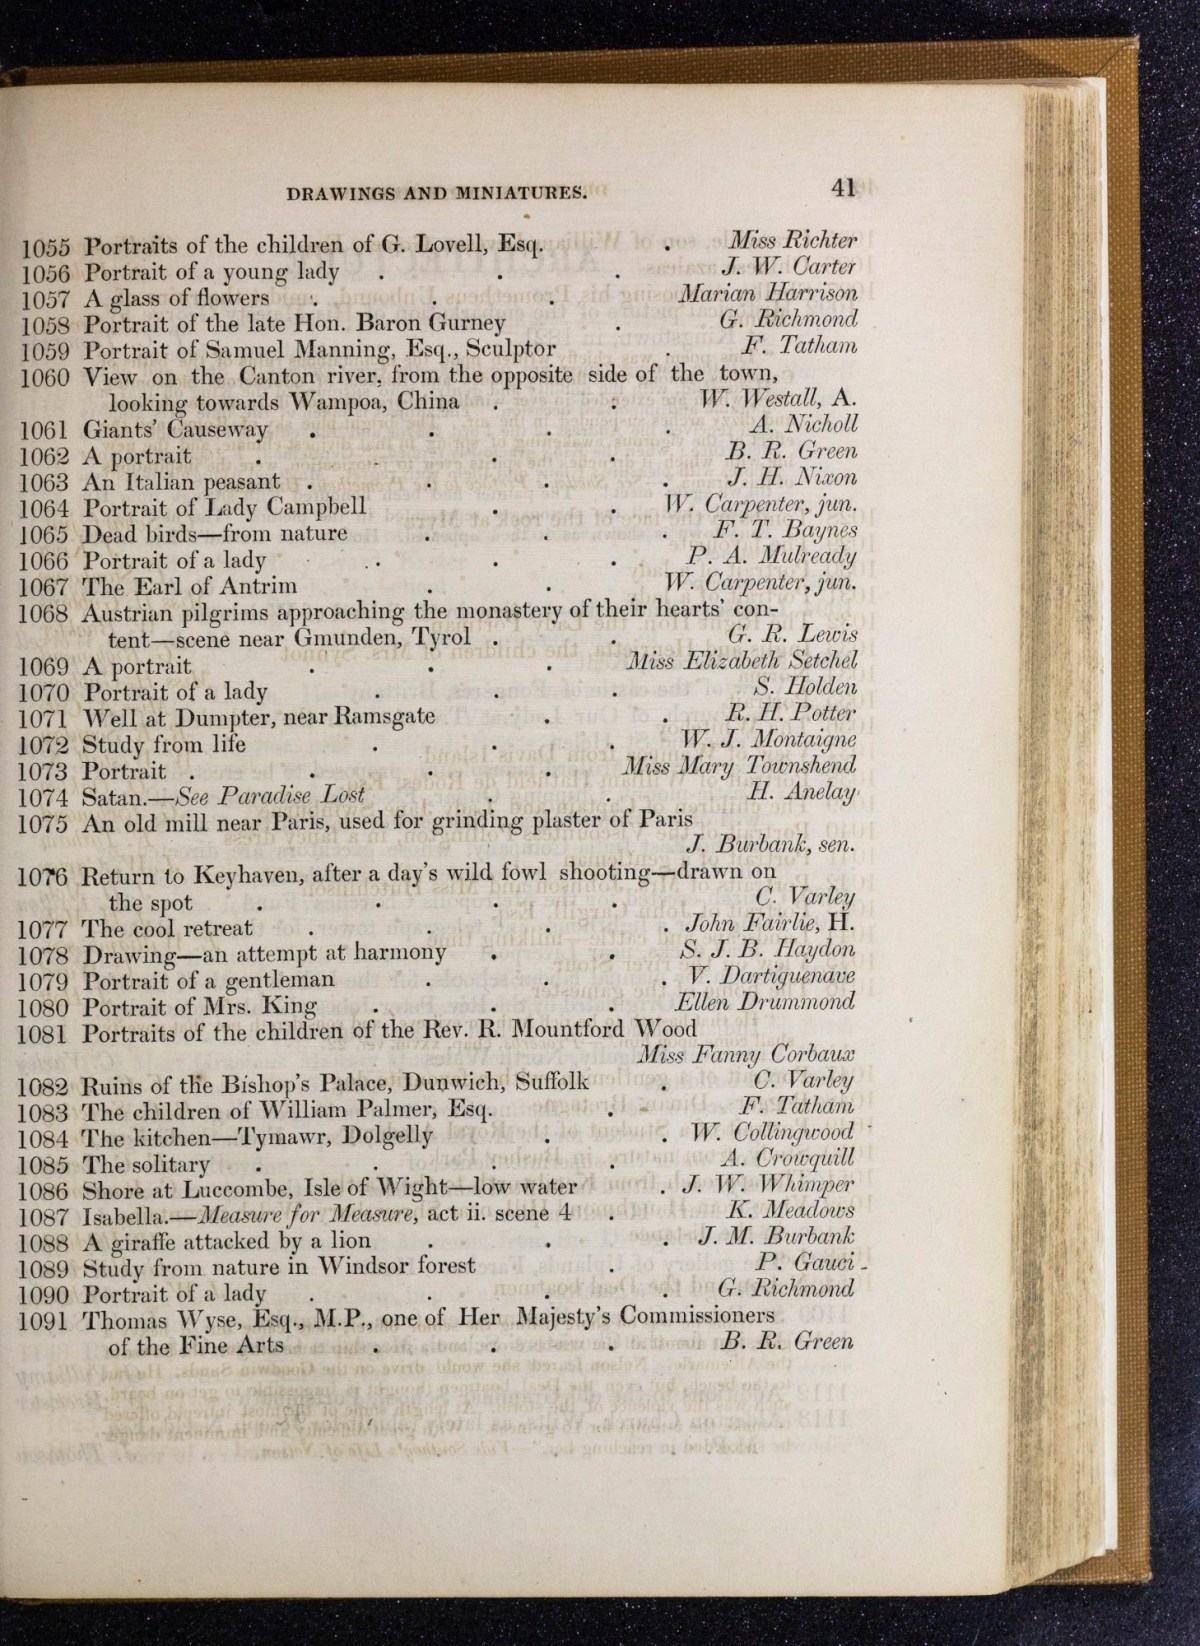 DRAWINGS AND MINIATURES. 41
1055 Portraits of the children of G. Lovell, Esq. . Miss Richter
1056 Portrait of a young lady . . . J. W. Carter
1057 A glass of flowers . . . Marian Harrison
1058 Portrait of the late Hon. Baron Gurney . G. Richmond
1059 Portrait of Samuel Manning, Esq., Sculptor . F. Tatham
1060 View on the Canton river, from the opposite side of the town,
looking towards Wampoa, China . . W. Westall, A.
1061 Giants' Causeway . . . . A. Nicholl
1062 A portrait . . . . B. R. Green
1063 An Italian peasant . . . . J. H. Nixon
1064 Portrait of Lady Campbell . . W. Carpenter, jun.
1065 Dead birds—from nature . . . F. T. Baynes
1066 Portrait of a lady . . . P. A. Mulready
1067 The Earl of Antrim . . W. Carpenter, jun.
1068 Austrian pilgrims approaching the monastery of their hearts' con-
tent—scene near Gmunden, Tyrol . . G. R. Lewis
1069 A portrait . . . Miss Elizabeth Setchel
1070 Portrait of a lady . . . S. Holden
1071 Well at Dumpter, near Ramsgate . . R. H. Potter
1072 Study from life . . . W. J. Montaigne
1073 Portrait . . . . Miss Mary Townshend
1074 Satan.—See Paradise Lost . . H. Anelay
1075 An old mill near Paris, used for grinding plaster of Paris
J. Burbank, sen.
1076 Return to Keyhaven, after a day's wild fowl shooting—drawn on
the spot . . . . C. Varley
1077 The cool retreat . . . . John Fairlie, H.
1078 Drawing—an attempt at harmony . . S. J. B. Haydon
1079 Portrait of a gentleman . . . V. Dartiguenave
1080 Portrait of Mrs. King . . . Ellen Drummond
1081 Portraits of the children of the Rev. R. Mountford Wood
Miss Fanny Corbaux
1082 Ruins of the Bishop's Palace, Dunwich, Suffolk . C. Varley
1083 The children of William Palmer, Esq. . F. Tatham
1084 The kitchen—Tymawr, Dolgelly . . W. Collingwood
1085 The solitary . . . . A. Crowquill
1086 Shore at Luccombe, Isle of Wight—low water . J. W. Whimper
1087 Isabella.—Measure for Measure, act ii. scene 4 . K. Meadows
1088 A giraffe attacked by a lion . . . J. M. Burbank
1089 Study from nature in Windsor forest . P. Gauci
1090 Portrait of a lady . . . . G. Richmond
1091 Thomas Wyse, Esq., M.P., one of Her Majesty's Commissioners
of the Fine Arts . . . B. R. Green